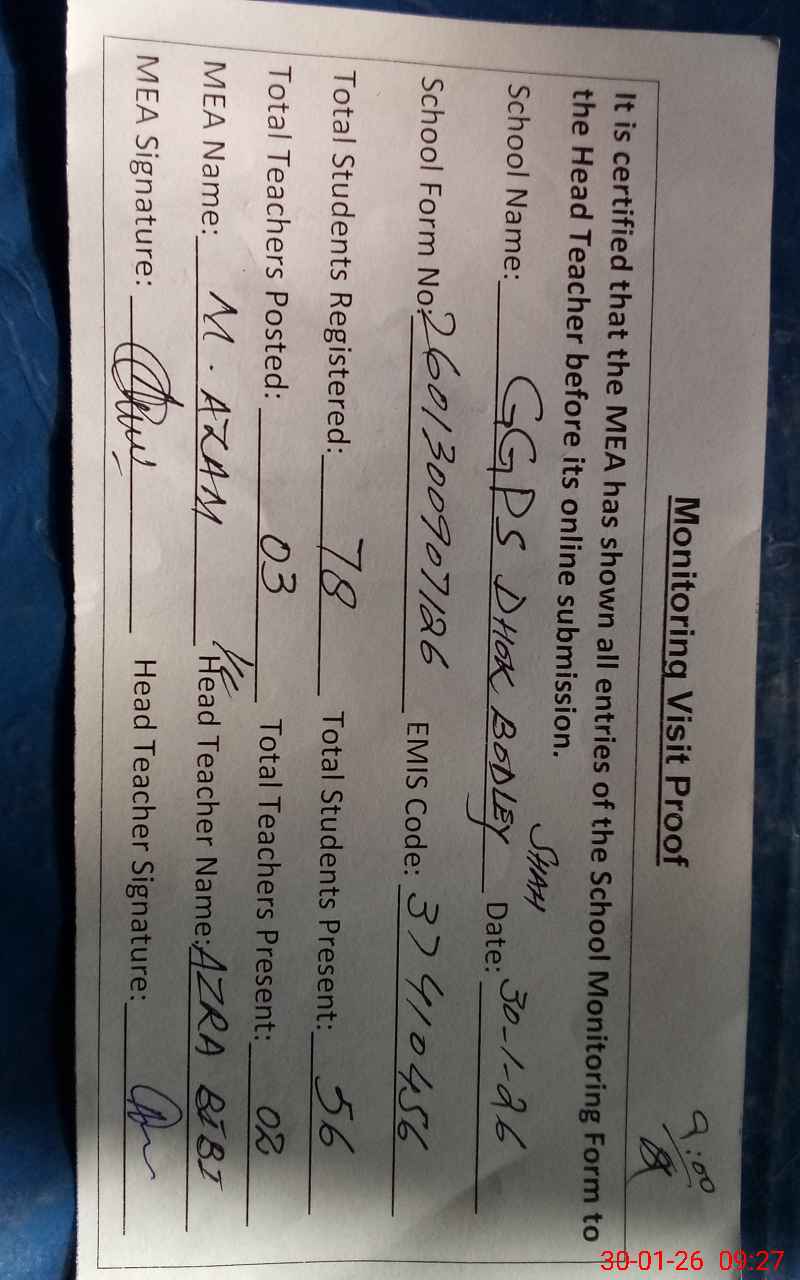 Monitoring Visit Proof
9:00
It is certified that the MEA has shown all entries of the School Monitoring Form to
the Head Teacher before its online submission.
School Name: GGPS DHOK BODLEY SHAH Date: 30-1-26
School Form No: 2601300907126 EMIS Code: 37410456
Total Students Registered: 78 Total Students Present: 56
Total Teachers Posted: 03 Total Teachers Present: 02
MEA Name: M. AZAM I/C Head Teacher Name: AZRA BIBI
MEA Signature: Head Teacher Signature:
30-01-26 09:27